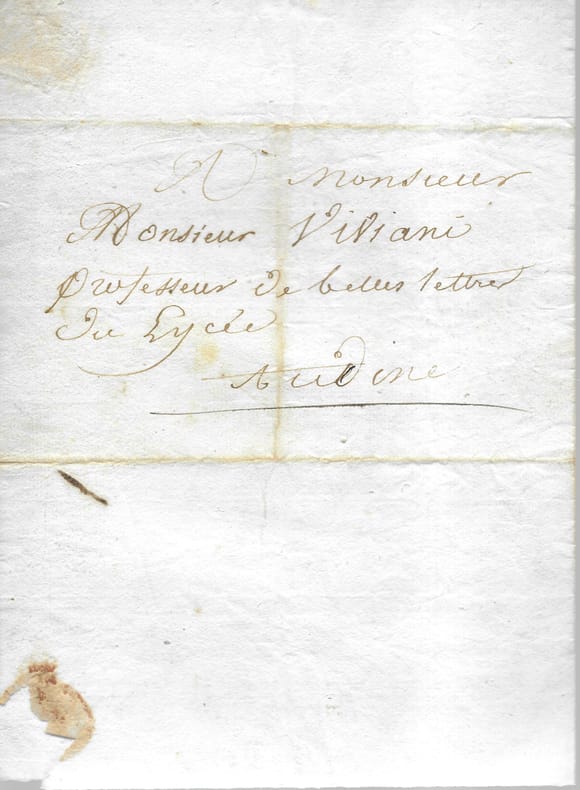 A Monsieur
Monsieur Viviani
professeur de belles lettres
du Lycée
A udine